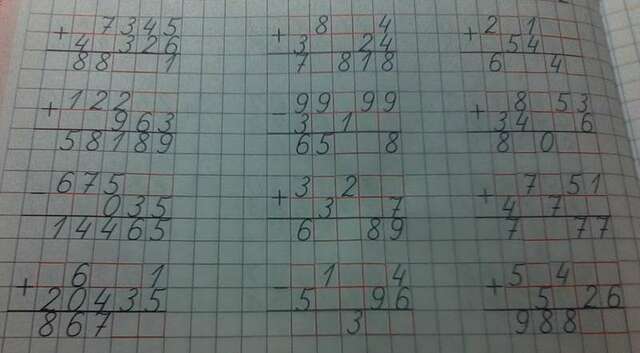 + 7345
4 326
88  1
+ 8  4
3  24
7 818
+ 2 1
54
6  4
+ 122
963
58189
- 99 99
3 1
65  8
+ 8 53
34  6
8 0
- 675
035
14465
+ 3 2
3  7
6  89
+ 7 51
4 7
7  77
+ 6  1
20435
867
- 1  4
5  96
3
+ 5 4
5 26
988